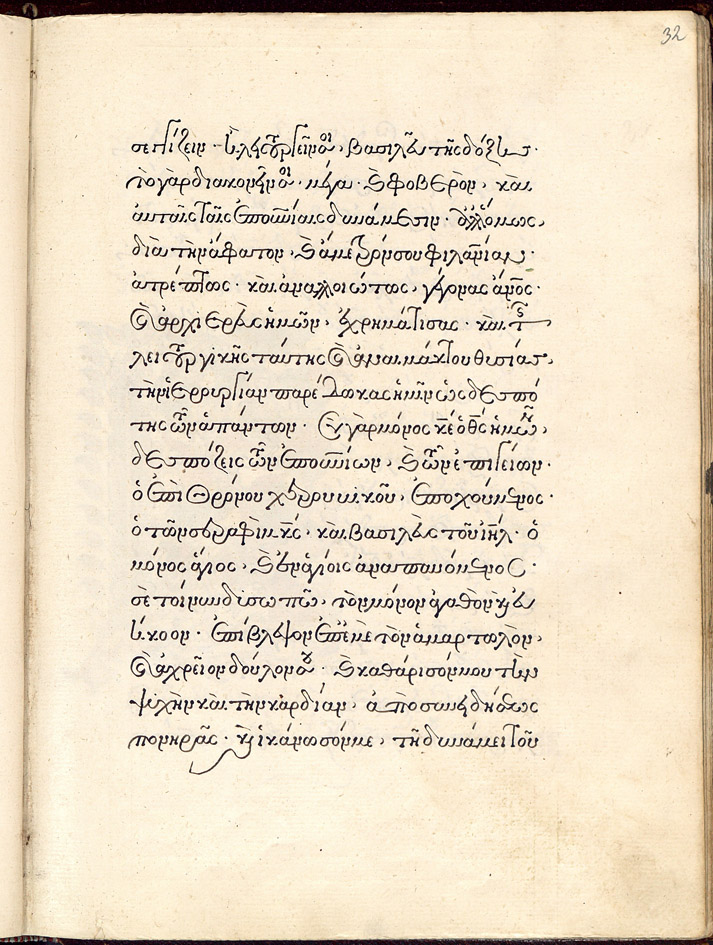 32
σεγγίζειν ἢ λειτουργεῖν σοι, βασιλεῦ τῆς δόξης·
τὸ γὰρ διακονεῖν σοι, μέγα· καὶ φοβερὸν, καὶ
αὐταῖς ταῖς ἐπουνίαις δυνάμεσιν· ἀλλ' ὅμως
διὰ τὴν ἄφατον, καὶ ἀμέτρόν σου φιλανίαν,
ἀτρέπτως· καὶ ἀναλλοιώτως, γέγονας ἄνος·
καὶ ἀρχιερεὺς ἡμῶν, ἐχρημάτισας· καὶ τῆς
λειτουργικῆς ταύτης καὶ ἀναιμάκτου θυσίας,
τὴν ἱερουργίαν παρέδωκας ἡμῖν ὡς δεσπό
της τῶν ἁπάντων· σὺ γὰρ μόνος κε ὁ θς ἡμῶν,
δεσπόζεις τῶν ἐπουνίων, καὶ τῶν ἐπιγείων·
ὁ ἐπὶ θρόνου χερουβικοῦ, ἐποχούμενος·
ὁ τῶν σεραφὶμ κς, καὶ βασιλεὺς τοῦ ιηλ· ὁ
μόνος ἅγιος, καὶ ἐν ἁγίοις ἀναπαυόμενος·
σὲ τοίνυν δυσωπῶ, τὸν μόνον ἀγαθὸν καὶ εὐ
ήκοον· ἐπίβλεψον ἐπ' ἐμὲ τὸν ἁμαρτωλὸν,
καὶ ἀχρεῖον δοῦλον σου· καὶ καθάρισόν μου τὴν
ψυχὴν καὶ τὴν καρδίαν, ἀπὸ συνειδήσεως
πονηρᾶς· καὶ ἱκάνωσόν με, τῇ δυνάμει τοῦ